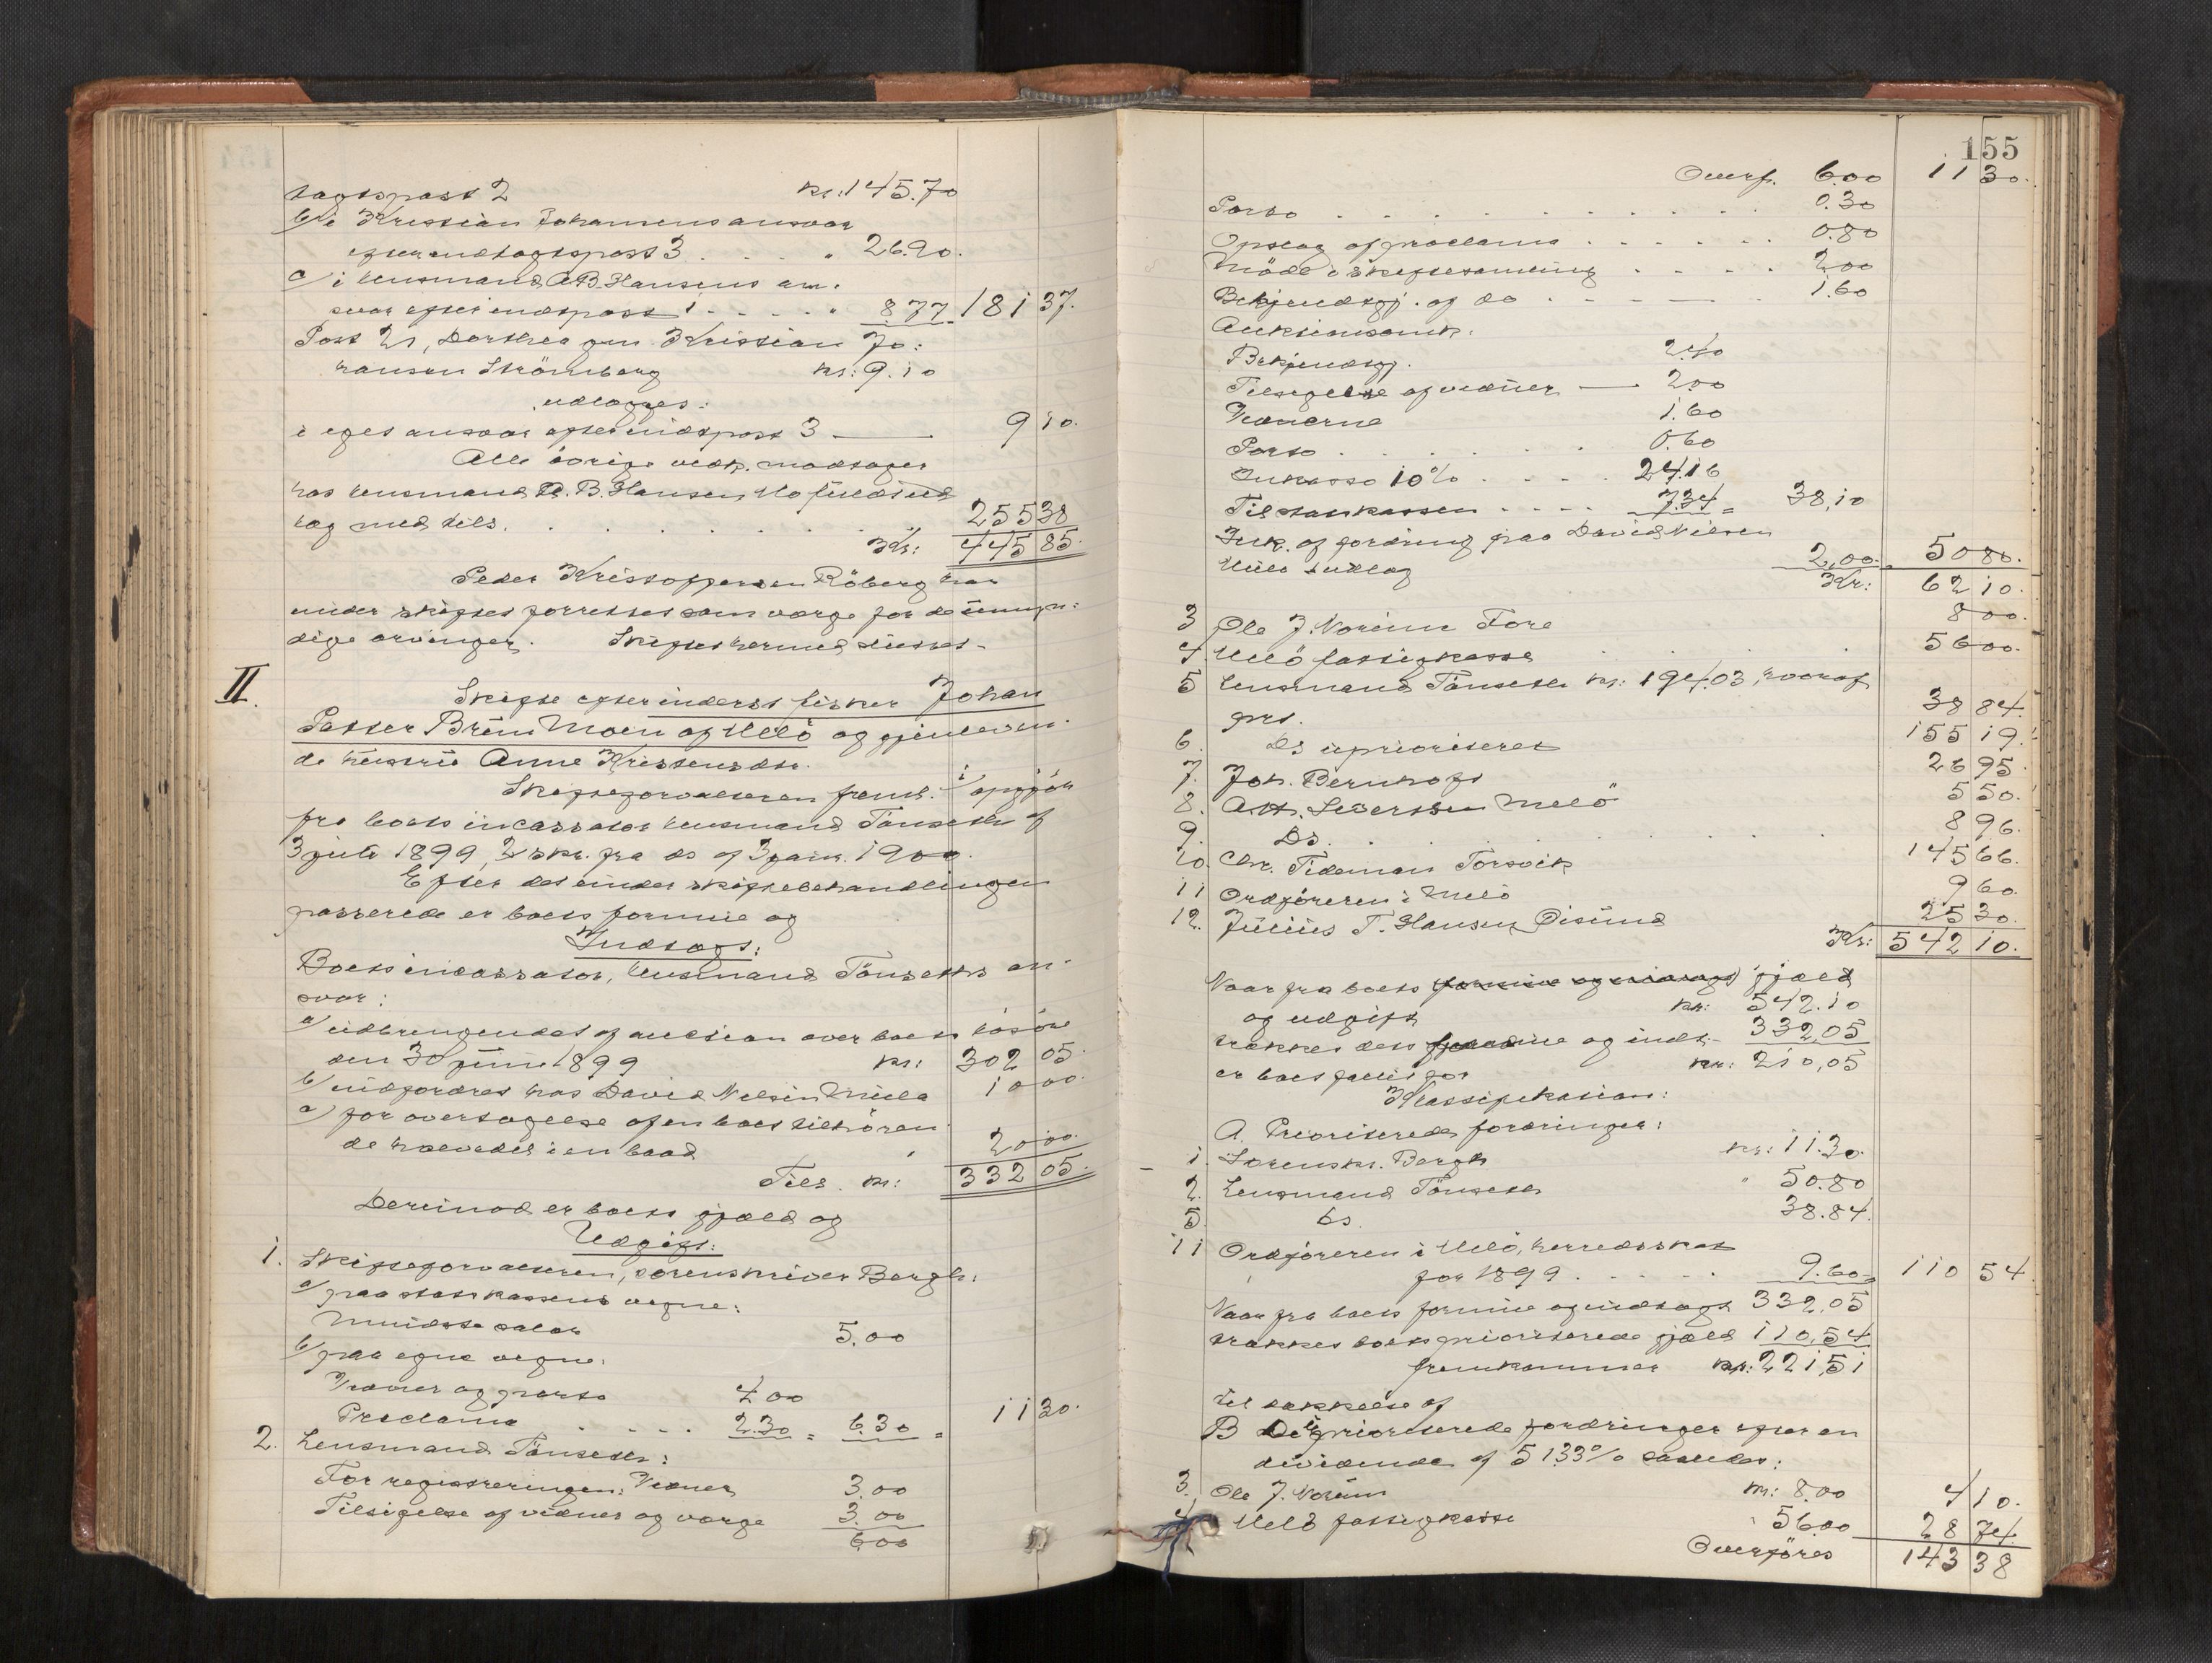 tagtspost 2 kr: 145.70
b/ i Kristian Johannens ansvar
efter indtagtspost 3 . . . . " 26.20.
c/ i lensmand A.B. Hansens an-
svar efter indtpost 1 . . . . . " 8.77 181 37.
Post 21, Dorthea gm. Kristian Jo:
hansen Strömberg kr: 9.10
udlægges:
i eget ansvar efter indtpost 3 9 10.
Alle övrige vedk. modtager
hos lensmand A. B. Hansen, Mo fuldt ud
lag med tils. . . . . . . . 255 38
Kr: 445 85.
Peder Kristoffersen Röberg har
under skiftet forrettet som værge for de umyn:
dige arvinger. Skiftet hermed sluttet.
II. Skifte efter inderst fisker Johan
Petter Bruun Moen af Melö og gjenleven-
de hustru Anne Kristensdtr.
Skifteforvalteren freml: 1/ opgjör
fra boets incassator lensmand Tönseth af
3 juli 1899, 2/ skr. fra ds af 3 janr. 1900.
Efter det under skiftebehandlingen
passerede er boets formue og
Indtægt:
Boets incassator, lensmand Tönseths an-
svar:
a/ udbringendet af auction over boets lösöre
den 30 juni 1899 kr: 302 05.
b/ udfordret hos David Nilsen Meila 10 00.
c/ for overtagelse af en boet tilhören-
de halvedel i en baad 20 00.
Tils. kr: 332 05.
Derimod er boets gjæld og
Udgift:
1. Skifteforvalteren, sorenskriver Bergh:
a/ paa statskassens vegne:
Mindste salær 5.00
b/ paa egne vegne:
Vidner og porto 4.00
Proclama . . . . 2.30 = 6.30 = 11 30.
2. Lensmand Tönseth:
For registreringen: Vidner 3.00
Tilsigelse af vidner og værge 3.00
6.00
155
Overf. 6.00 11 30.
Porto . . . . . . . . . . . 0.30
Opslag af proclama . . . . . . 0.80
Möde i skiftesamling . . . . 2.00
Bekjendtgj. af do . . 1.60
Auktionsomk.
Bekjendtgj. 2.40
Tilsigelse af vidner 2.00
Vidnerne 1.60
Porto . . . . . . 0.60
Inkasso 10% . . . . . 24.16
Til statskassen . . . . 7.34 = 38,10
Ink. af fordring paa David Nilsen
Meila udlæg 2,00. 50 80.
Kr: 62 10.
3 Ole J. Norum Fore 8 00.
4. Melö fattigkasse . . . 56 00.
5 Lensmand Tönseth kr: 194.03, hvoraf
prt. 38 84.
6. Ds uprioriteret 155 19.
7. Joh. Bernhoft 26 95
8. Ath. Sivertsen Melö 5 50.
9. Ds. . . . . . . 8 96.
10. Chr. Tideman Torsvik 145 66.
11 Ordföreren i Melö 9 60.
12. Julius T. Hansen Öisund 25 30.
Kr: 542 10.
Naar fra boets formue og indtægt gjæld
og udgift kr: 542.10
trækkes dets formue og indt. 332,05
er boet fallit for kr: 210,05
Klassifikation:
A. Prioriterede fordringer:
1. Sorenskr. Bergh kr: 11.30.
2. Lensmand Tönseth " 50.80
5. ds 38.84.
11 Ordföreren i Melö, herredsskat
for 1899 . . . . . 9.60 = 110 54.
Naar fra boets formue og indtægt 332,05
trækkes boets prioriterede gjæld 110,54
fremkommer kr: 221,51
til dækkelse af
B Uprioriterede fordringer efter en
dividende af 51.33% saaledes:
3. Ole J. Norum kr: 8.00 4 10.
4. Melö fattigkasse " 56.00 28 74.
Overföres 143 38